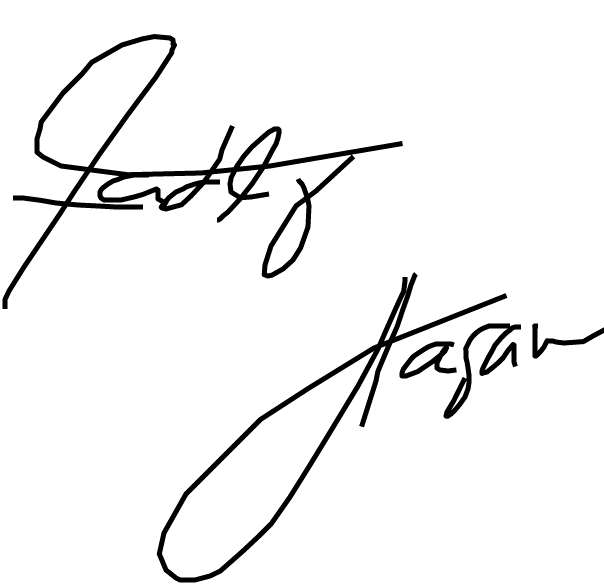 Fadly
Hasan